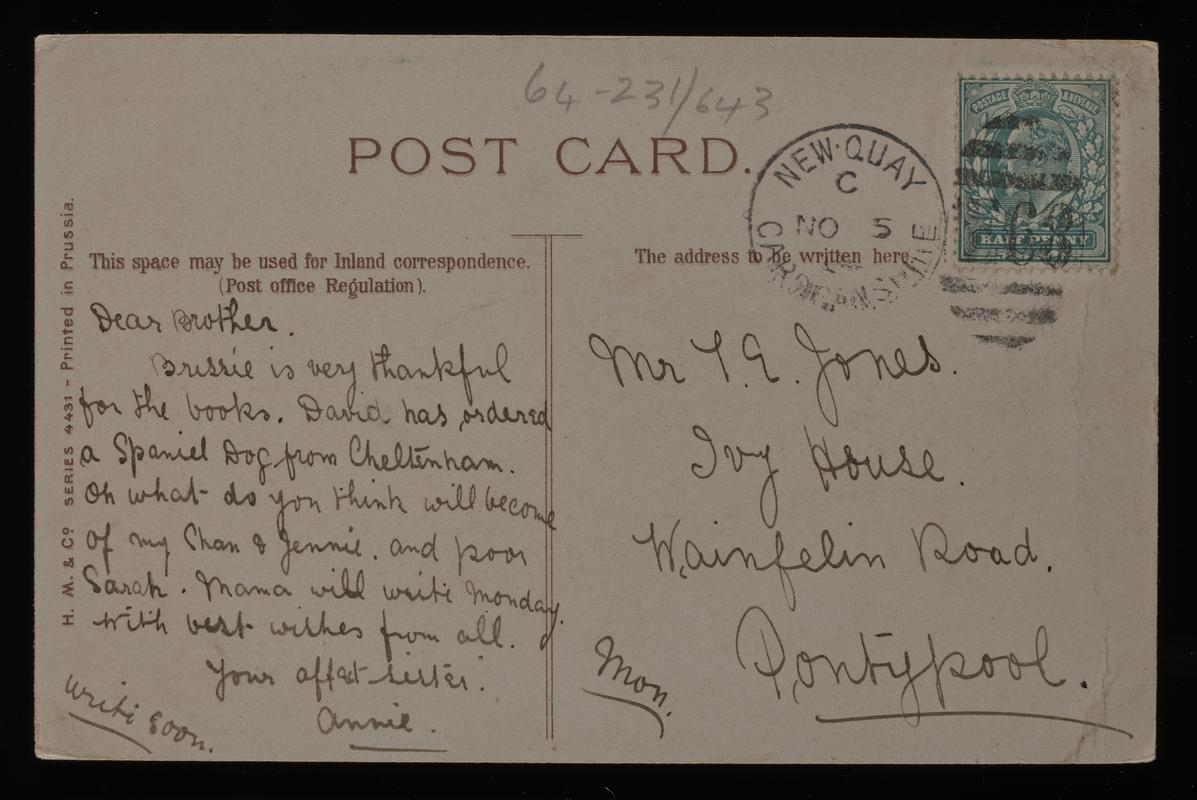 64-231/643
POST CARD.
NEW·QUAY
C
NO 5
CARDIGANSHIRE
POSTAGE & REVENUE
HALF PENNY
C63
H. M. & Co. SERIES 4431 - Printed in Prussia.
This space may be used for Inland correspondence.
(Post office Regulation).
The address to be written here.
Dear Brother.
Brissie is very thankful
for the books. David has ordered
a Spaniel Dog from Cheltenham.
Oh what do you think will become
of my Shan & Jennie. and poor
Sarah. Mama will write Monday.
With best wishes from all.
Your affect sister.
Annie.
Write soon.
Mr T. E. Jones.
Ivy House.
Wainfelin Road.
Pontypool.
Mon.